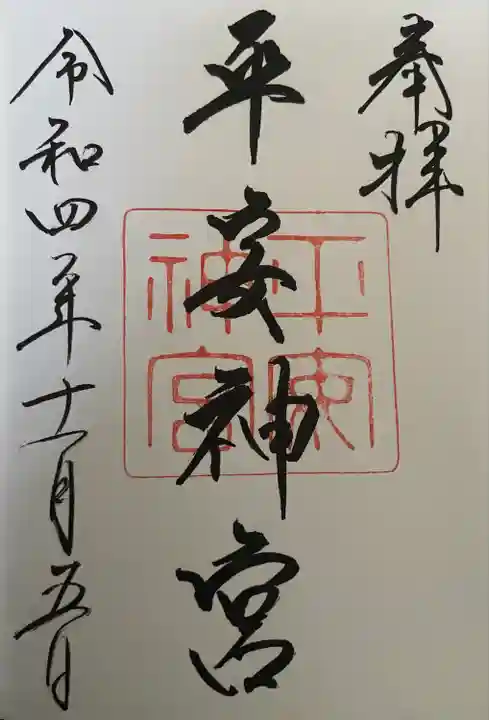 奉拝
平安神宮
平安神宮
令和四年十一月五日